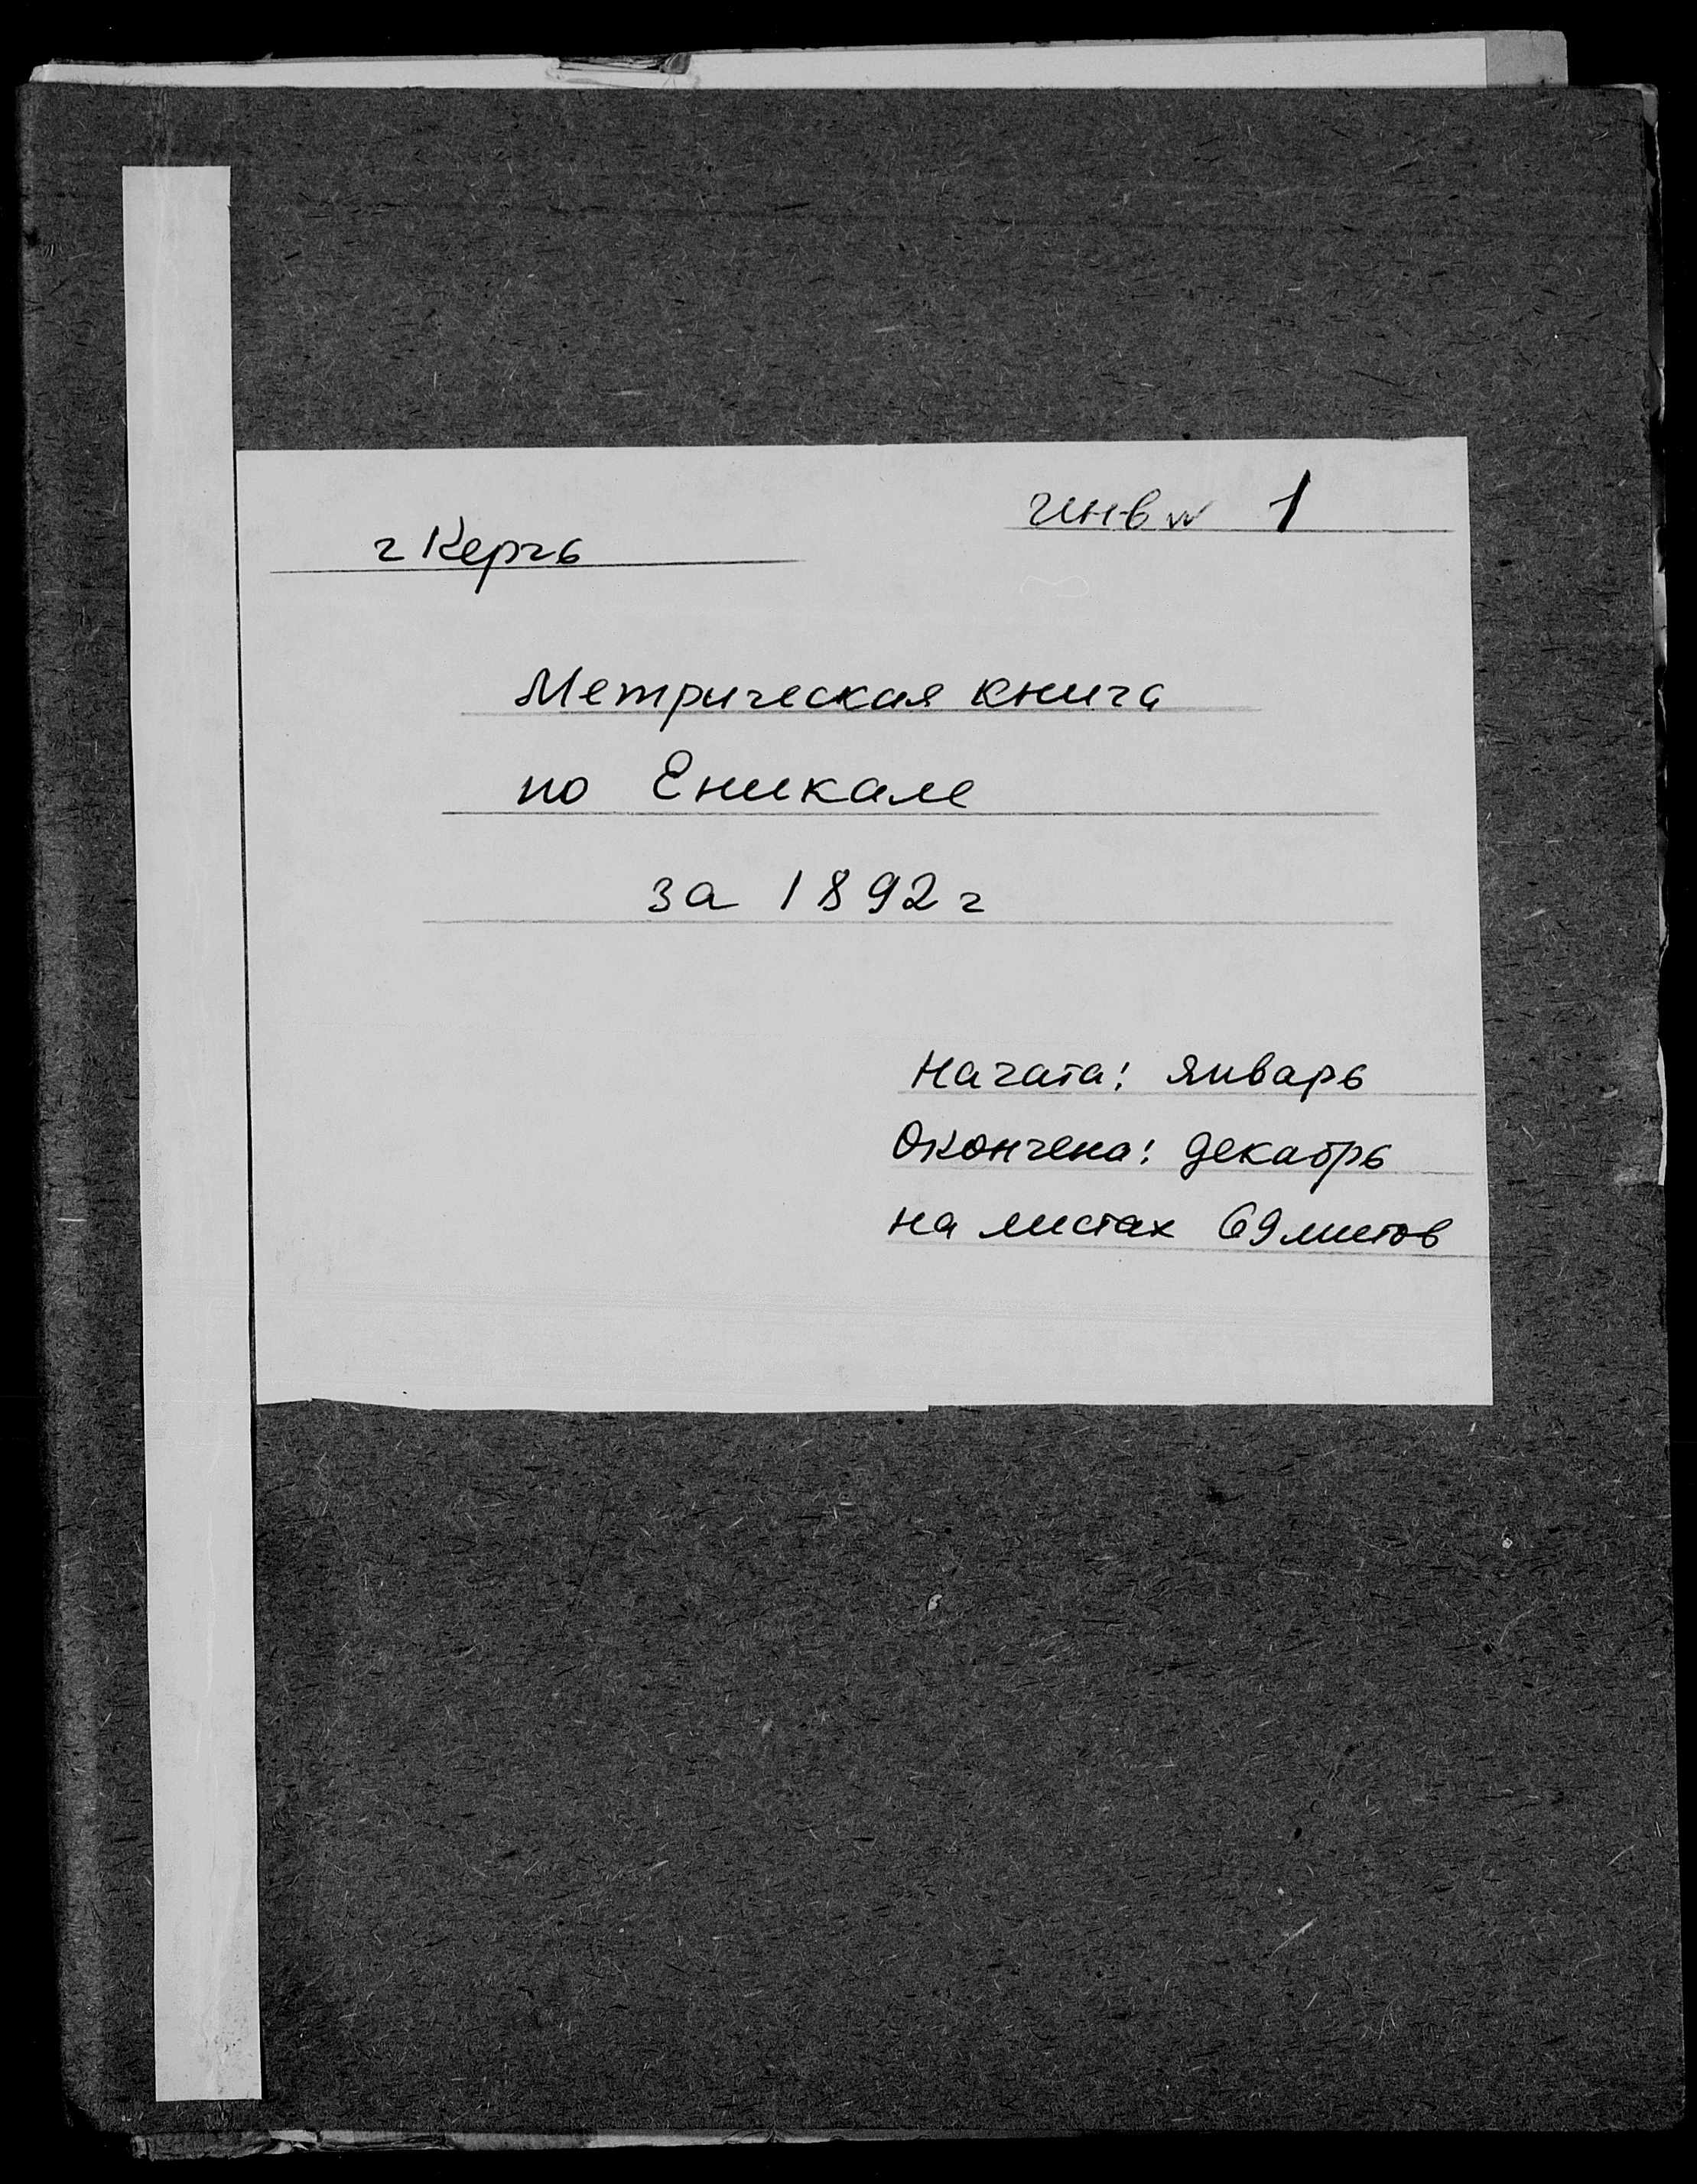 инв № 1
г Керчь
Метрическая книга
по Еникале
за 1892 г
Начата: январь
Окончена: декабрь
на листах 69 листов